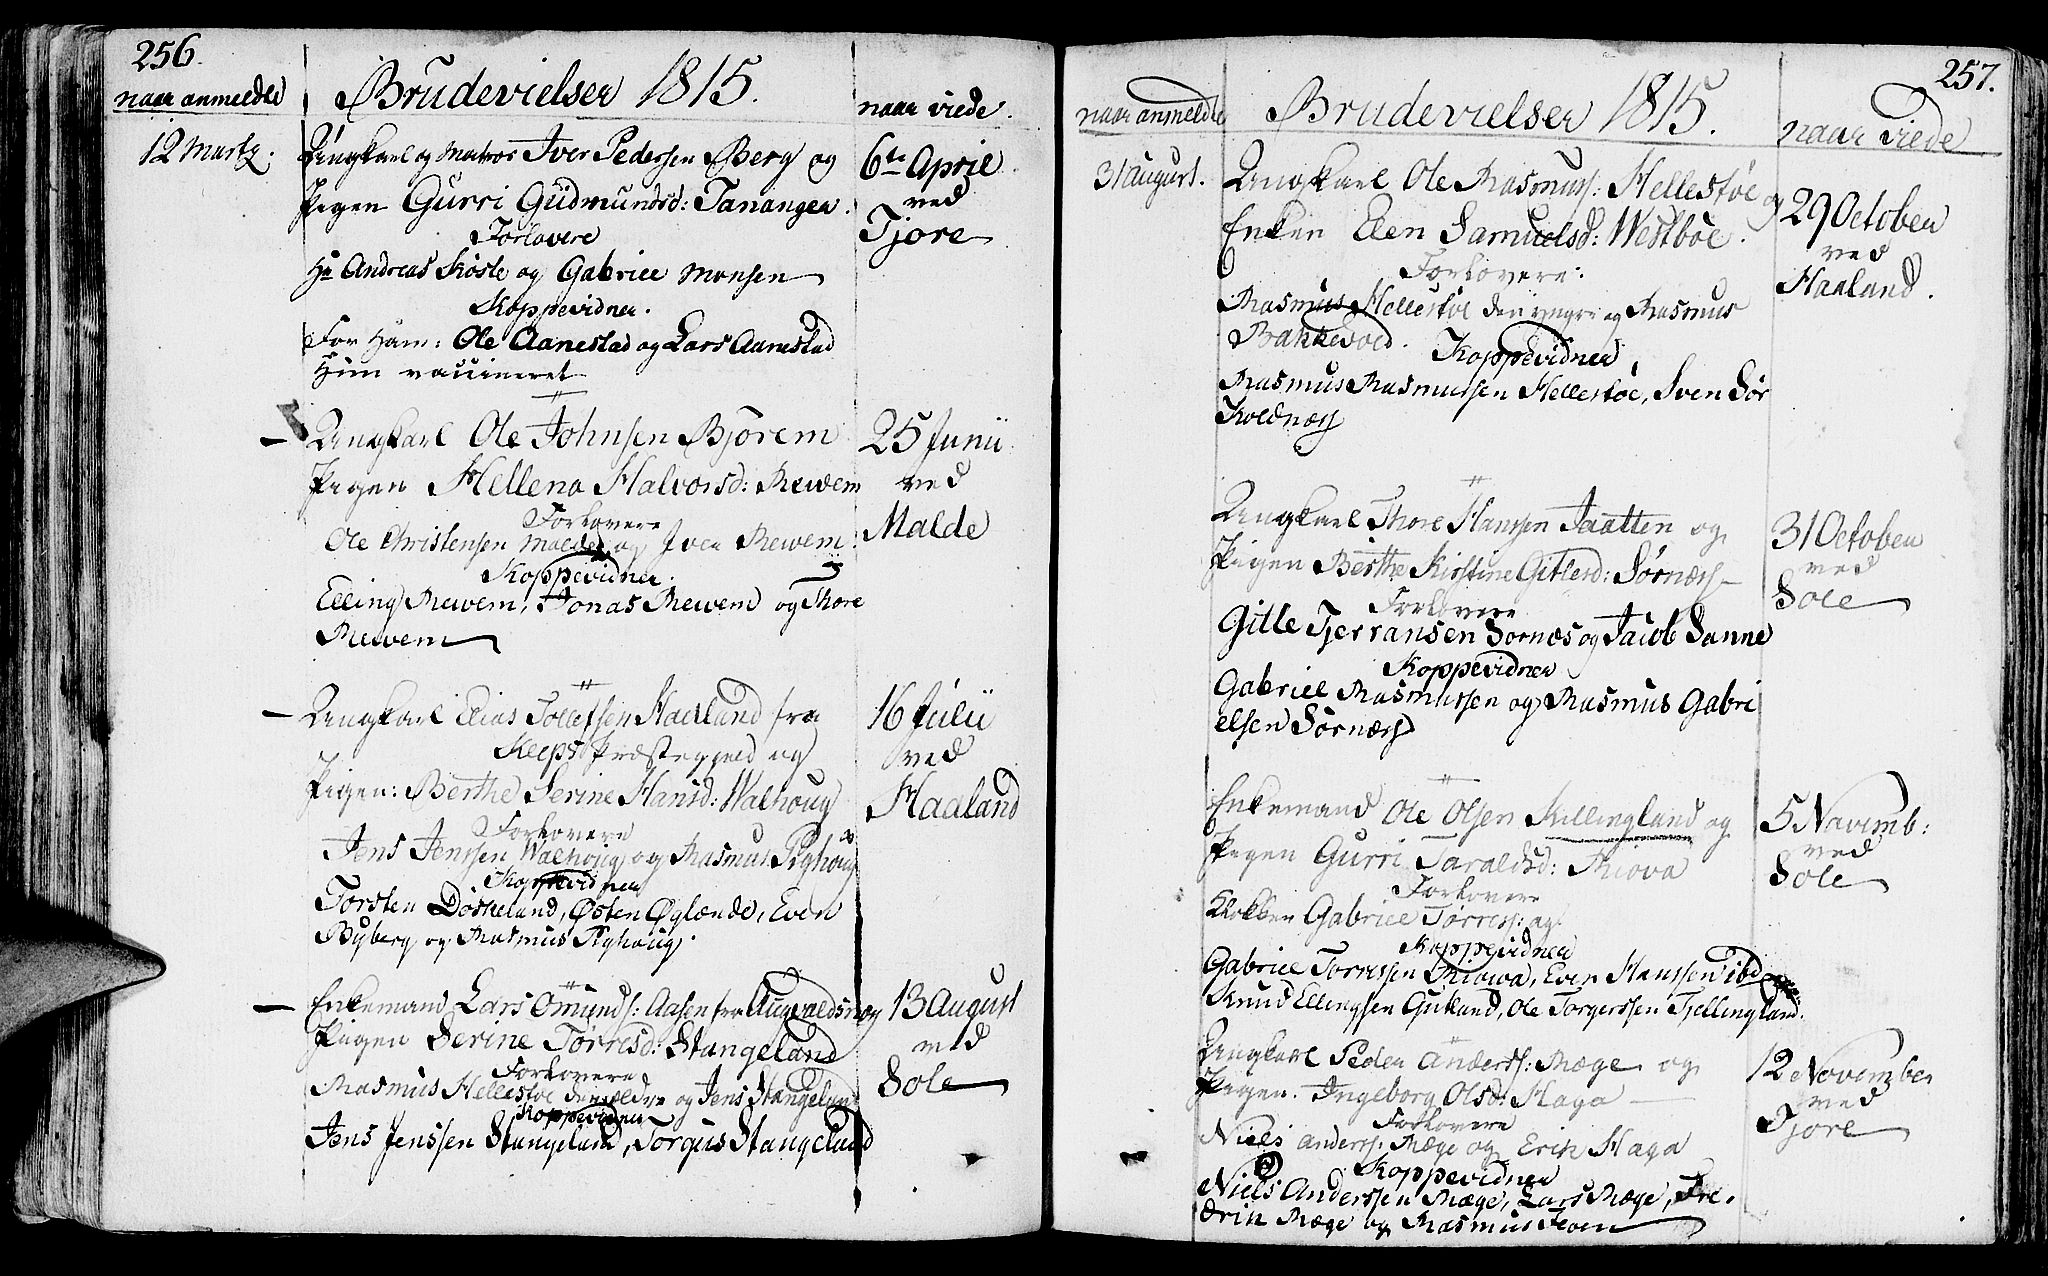 256.
naar anmeldte
Brudevielser 1815.
naar viede.
12 Martz.
Ungkarl og Matros Iver Pedersen Berg og
Pigen Gurri Gudmundsd: Tananger.
Forlovere
Hr Andreas Kosle og Gabriel Monsen
Koppevidner.
For Ham: Ole Aanestad og Lars Aanestad
Hun vaccineret
6te April
ved
Tjore
Ungkarl Ole Johnsen Bjorem
Pigen Hellena Halvorsd: Rewem
Forlovere
Ole Christensen Malde og Iver Rewem.
Koppevidner.
Elling Rewem, Jonas Rewem og Thore
Rewem
25 Junii
ved
Malde
Ungkarl Elias Tollefsen Haaland fra
Kleps Præstegield og
Pigen: Berthe Serine Hansd: Walhoug
Forlovere
Jens Jenssen Walhoug og Rasmus Ryhoug
Koppevidner
Torsten Doskeland, Østen Øglænde, Even
Byberg og Rasmus Ryhoug.
16 Julii
ved
Haaland
Enkemand Lars Omunds: Aasen fra Augvaldsn og
Pigen Serine Torresd: Stangeland
Forlovere
Rasmus Hellestoe den ældre og Jens Stangeland
Koppevidner
Jens Jenssen Stangeland, Torgus Stangeland
13 August
ved
Sole
257.
naar anmeldte
Brudevielser 1815.
naar viede
31 August.
Ungkarl Ole Rasmuss: Hellestøe og
Enken Elen Samuelsd: Westbøe.
Forlovere:
Rasmus Hellestøe den yngre og Rasmus
Bakkevold.
Koppevidner
Rasmus Rasmussen Hellestøe, Sven Sør
Koldnæs
29 October
ved
Haaland.
Ungkarl Thore Hanssen Jaatten og
Pigen Berthe Kirstine Gitlesd: Sørnæs
Forlovere
Gitle Tjerransen Sornæs og Jacob Sanne
Koppevidner
Gabriel Rasmussen og Rasmus Gabri
elsen Sørnæs
31 October
ved
Sole
Enkemand Ole Olsen Killingland og
Pigen Gurri Taraldsd: Riova
Forlovere
Klokker Gabriel Torress: og
Koppevidner
Gabriel Torressen Riowa, Even Hanssen ibd
Knud Ellingsen Gutland, Ole Torgerssen Tjellingland.
5 Novemb:
ved
Sole
Ungkarl Peder Anderss: Ræge og
Pigen. Ingeborg Olsd: Haga
Forlovere
Niels Anderss: Ræge og Erik Haga
Koppevidner
Niels Anderssen Ræge, Lars Ræge, Fre-
derik Ræge og Rasmus
12 November
ved
Tjore